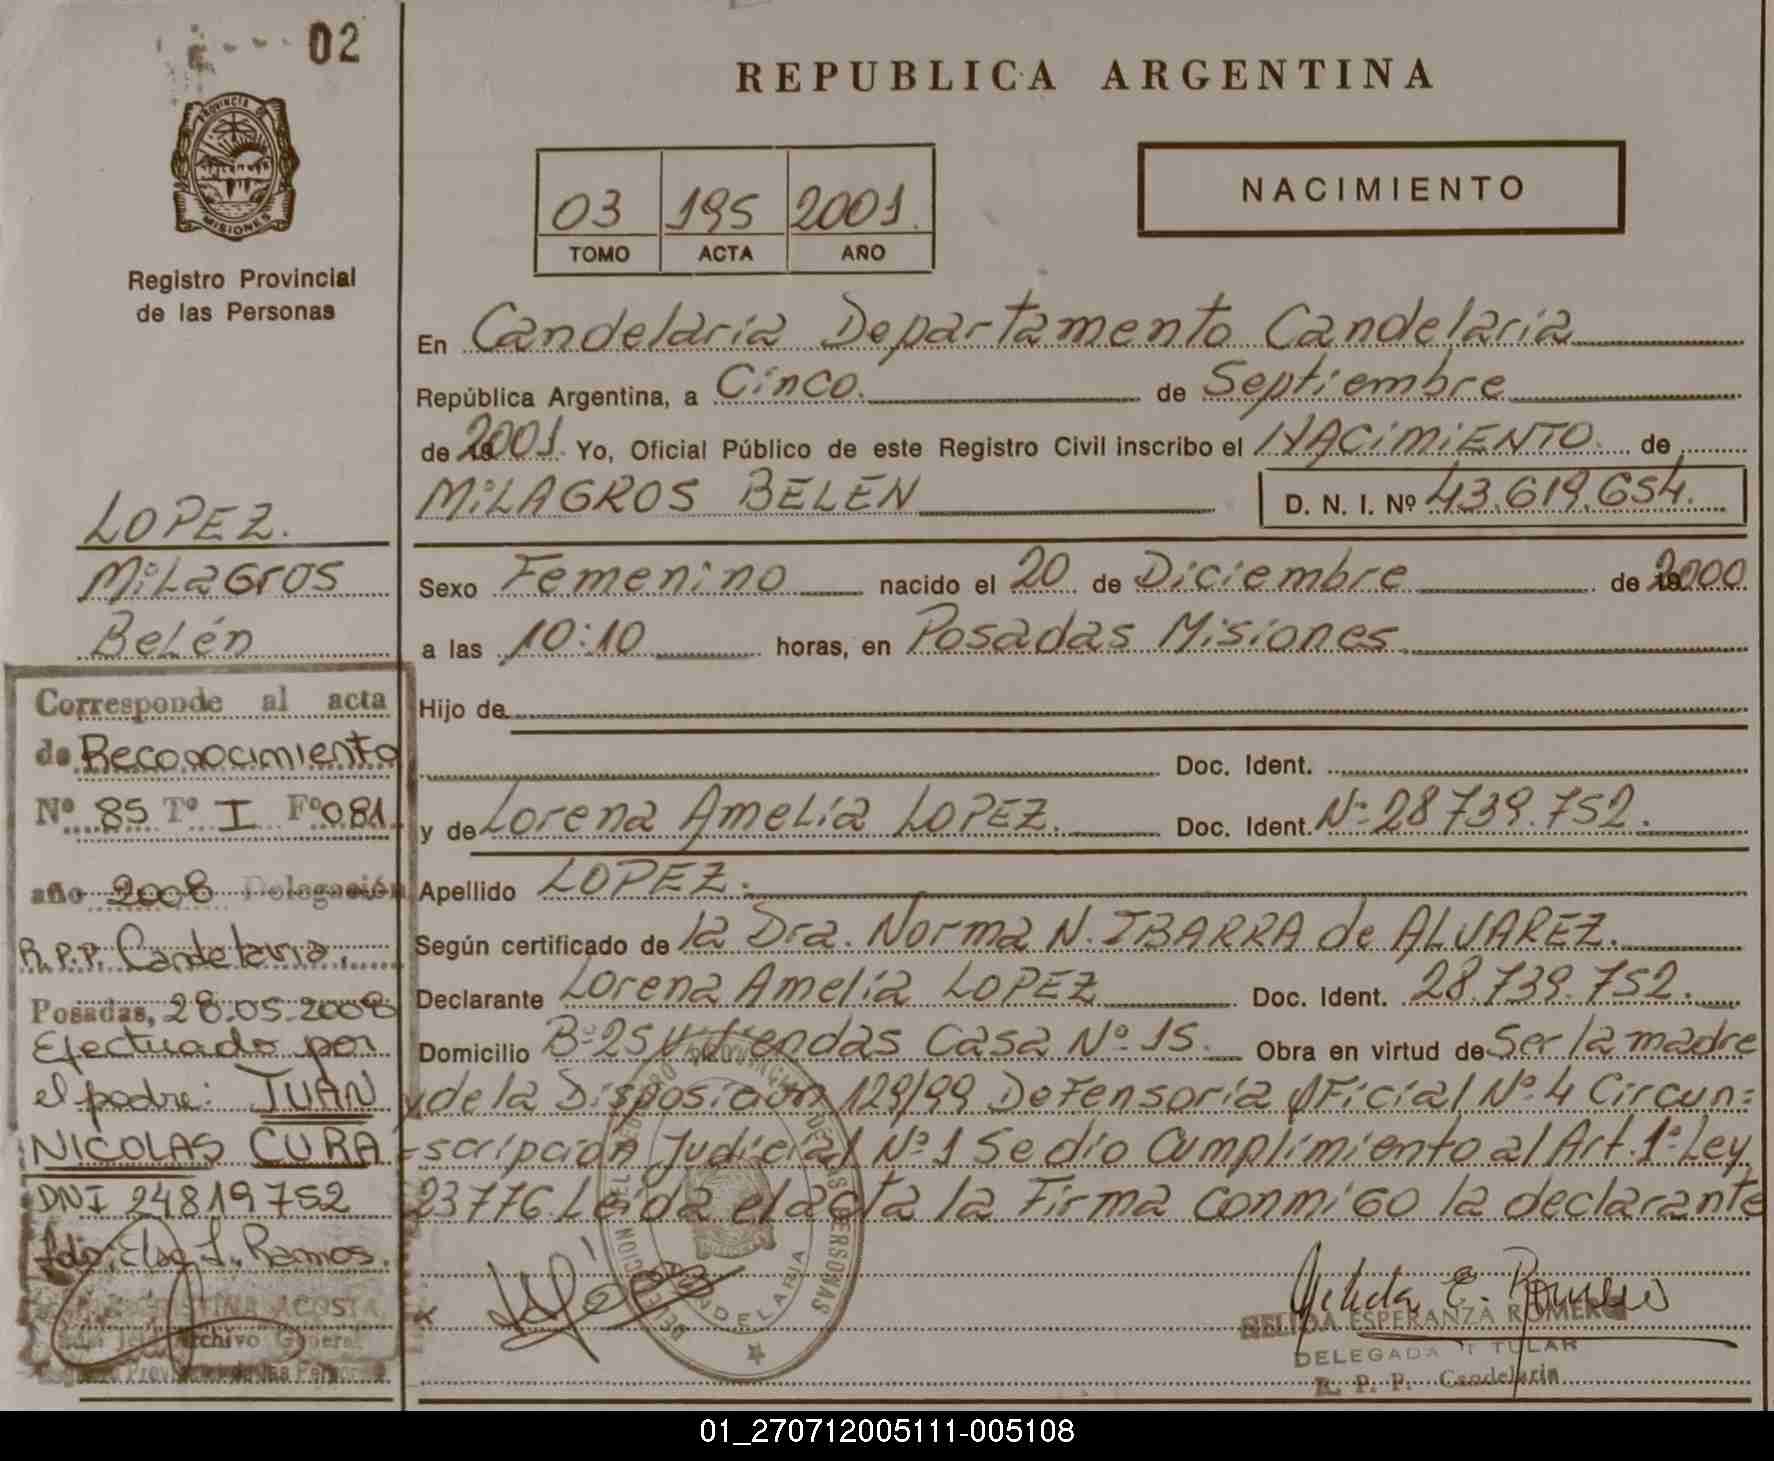 02
PROVINCIA DE
MISIONES
Registro Provincial
de las Personas
LOPEZ.
MiLaGros
BeLén
Corresponde al acta
de Reconocimiento
Nº 85 Tº I Fº 081
año 2008 Delegación
R.P.P. Candelaria.
Posadas, 28.05.2008
Efectuado por
el padre: JUAN
NICOLAS CURA
DNI 24819752
Fdo: Elsa J. Ramos.
ACOSTA
Archivo General
REPUBLICA ARGENTINA
03 195 2001.
TOMO ACTA AÑO
NACIMIENTO
En Candelaria Departamento Candelaria
República Argentina, a Cinco. de Septiembre
de 2001. Yo, Oficial Público de este Registro Civil inscribo el NACiMiENTO. de
MiLAGROS BELEN D. N. I. Nº 43.619.654.
Sexo Femenino nacido el 20 de Diciembre de 2000
a las 10:10 horas, en Posadas Misiones.
Hijo de
Doc. Ident.
y de Lorena AmeLia LOPEZ. Doc. Ident. Nº 28.739.752.
Apellido LOPEZ.
Según certificado de la Dra. Norma N. IBARRA de ALVAREZ.
Declarante Lorena Amelia LOPEZ Doc. Ident. 28.739.752.
Domicilio Bº 25 Viviendas Casa Nº 15. Obra en virtud de Ser la madre
y de la Disposición 129/99 Defensoría Oficial Nº 4 Circun=
=scripción Judicial Nº 1 Se dio Cumplimiento al Art. 1º Ley
23776 Leída el acta la Firma conmiGo la declarante
CANDELARIA
NELIDA ESPERANZA ROMERO
DELEGADA TITULAR
R. P. P. Candelaria
01_270712005111-005108